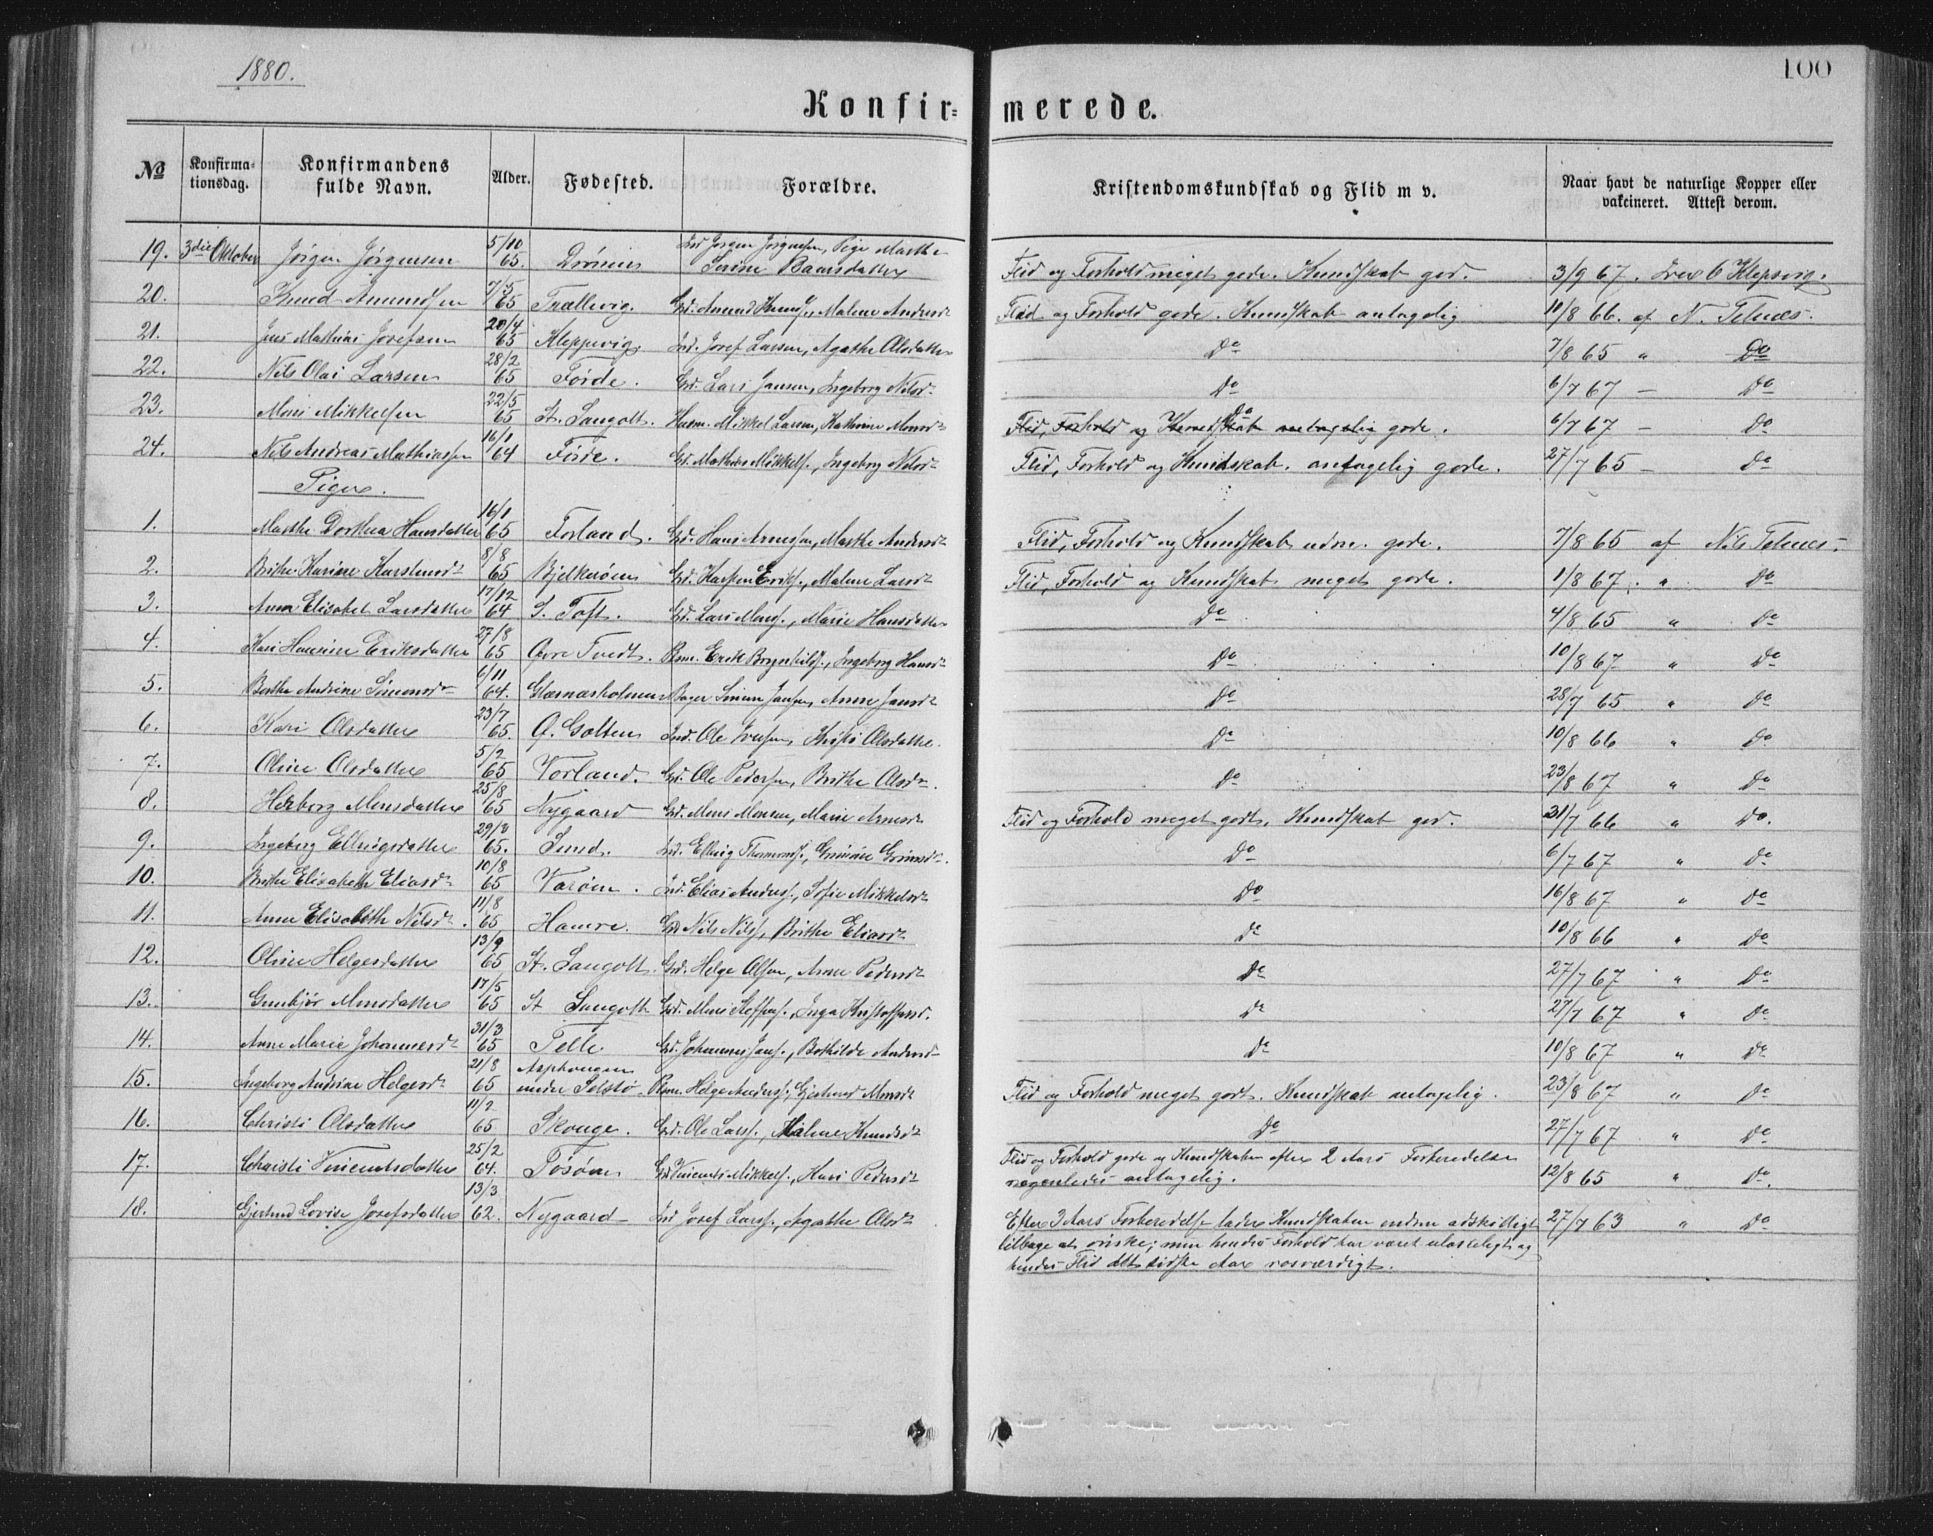 1880.
100
Konfir= merede.
No Konfirma=tionsdag. Konfirmandens fulde Navn. Alder. Fødested. Forældre. Kristendomskundskab og Flid m v. Naar havt de naturlige Kopper eller vakcineret. Attest derom.
19. 3die Oktober Jørgen Jørgensen 5/10 65. Jørgen Jørgensen, Pige Marthe Serine Baarsdatter Flid og Forhold meget gode. Kundskab god. 3/9 67.
20. Knud Amundsen 7/5 65 Trællevig. Gd. Amund Knuds., Malene Andersd Flid og Forhold gode. Kundskab antagelig 10/8 66. af N. Telnæs.
21. Jens Mathias Josefsen 20/4 65 Kleppevig. Ind. Josef Larsen, Agathe Olsdatter Do 7/8 65 " Do
22. Nils Olai Larsen 28/2 65 Førde. Gd. Lars Jansen, Ingeborg Nilsd. Do 6/7 67 — Do
23. Mons Mikkelsen 22/5 65 St. Sangolt. Husm. Mikkel Larsen, Kathrine Monsd Flid, Forhold og Kundskab antagelig gode. Do 6/7 67 — Do
24. Nils Andreas Mathiassen 16/1 64 Førde. Gd. Mathias Mikkels., Ingeborg Nilsd Flid, Forhold og Kundskab antagelig gode. 27/7 65 — Do
Piger.
1. Marthe Dorthea Hansdatter 16/1 65 Forland. Gd. Hans Arnesen, Marthe Andersd Flid, Forhold og Kundskab udm. gode. 7/8 65 af Nils Telnæs.
2. Brithe Karine Karstensd 8/8 65 Bjelkerøen Gd. Karsten Eriks., Malene Larsd Flid, Forhold og Kundskab meget gode. 1/8 67. " Do
3. Anna Elisabet Larsdatter 17/12 64 S. Toft. Gd. Lars Mons., Marie Hansdatter Do 4/8 65 " Do
4. Kari Hansine Eriksdatter 27/8 65 Øvre Tvedt. Erik Brynhilds., Ingeborg Hansd Do 10/8 67 " Do
5. Berthe Andrine Simonsd 6/11 64. Glæsnæsholmen Simon Jansen, Anne Jansd Do 28/7 65 " Do
6. Kari Olsdatter 23/7 65. Ø. Golten Ind. Ole Iversen, Christi Olsdatter. Do 10/8 66 " Do
7. Oline Olsdatter 5/2 65 Vorland. Gd. Ole Pedersen, Brithe Olsd. Do 23/8 67 " Do
8. Herborg Monsdatter 25/8 65 Nygaard Gd. Mons Monsen, Marie Arnesd Flid og Forhold meget godt. Kundskab god. 31/7 66 " Do.
9. Ingeborg Ellingsdatter 29/3 65. Lund. Ind. Elling Thormods., Do 6/7 67 " Do
10. Brithe Elisabeth Eliasd 10/8 65 Varøen. Ind. Elias Anders., Sofie Mikkelsd Do 16/8 67 " Do
11. Anne Elisabeth Nilsd. 11/8 65 Hamre. Gd. Nils Nils., Brithe Eliasd Do 10/8 66 " Do
12. Oline Helgesdatter 13/9 65 St. Sangolt. Gd. Helge Olsen, Anne Pedersd Do 27/7 67 " Do
13. Gunbjør Monsdatter 17/5 65 St Sangolt Gd. Mons Steffens., Inga Kristoffersd. Do 27/7 67 " Do
14. Anne Marie Johannesd 31/3 65 Telle Gd. Johannes Jans., Bothilde Andersd Do 10/8 67 " Do
15. Ingeborg Andrine Helgesd 21/8 65 Asphougen under Selstø Helge Anders., Gjertrud Monsd Flid og Forhold meget godt. Kundskab antagelig. 23/8 67 " Do
16. Christi Olsdatter 11/2 65 Skouge. Gd. Ole Lars., Malene Knudsd Do 27/7 67 " Do
17. Christi Vincentsdatter 25/2 64. Tøsøen Gd. Vincents Mikkels., Kari Pedersd Flid og Forhold gode og Kundskaben efter 2 Aars Forberedelse
nogenledes antagelig. 12/8 65 " Do.
18. Gjertrud Lovise Josefsdatter 13/3 62. Nygaard Ind Josef Lars., Agathe Olsd Efter 3 Aars Forberedelse lader Kundskaben endnu adskilligt 27/7 63 " Do
tilbage at ønske; men hendes Forhold har været ulasteligt og
hendes Flid det sidste Aar rosværdigt.